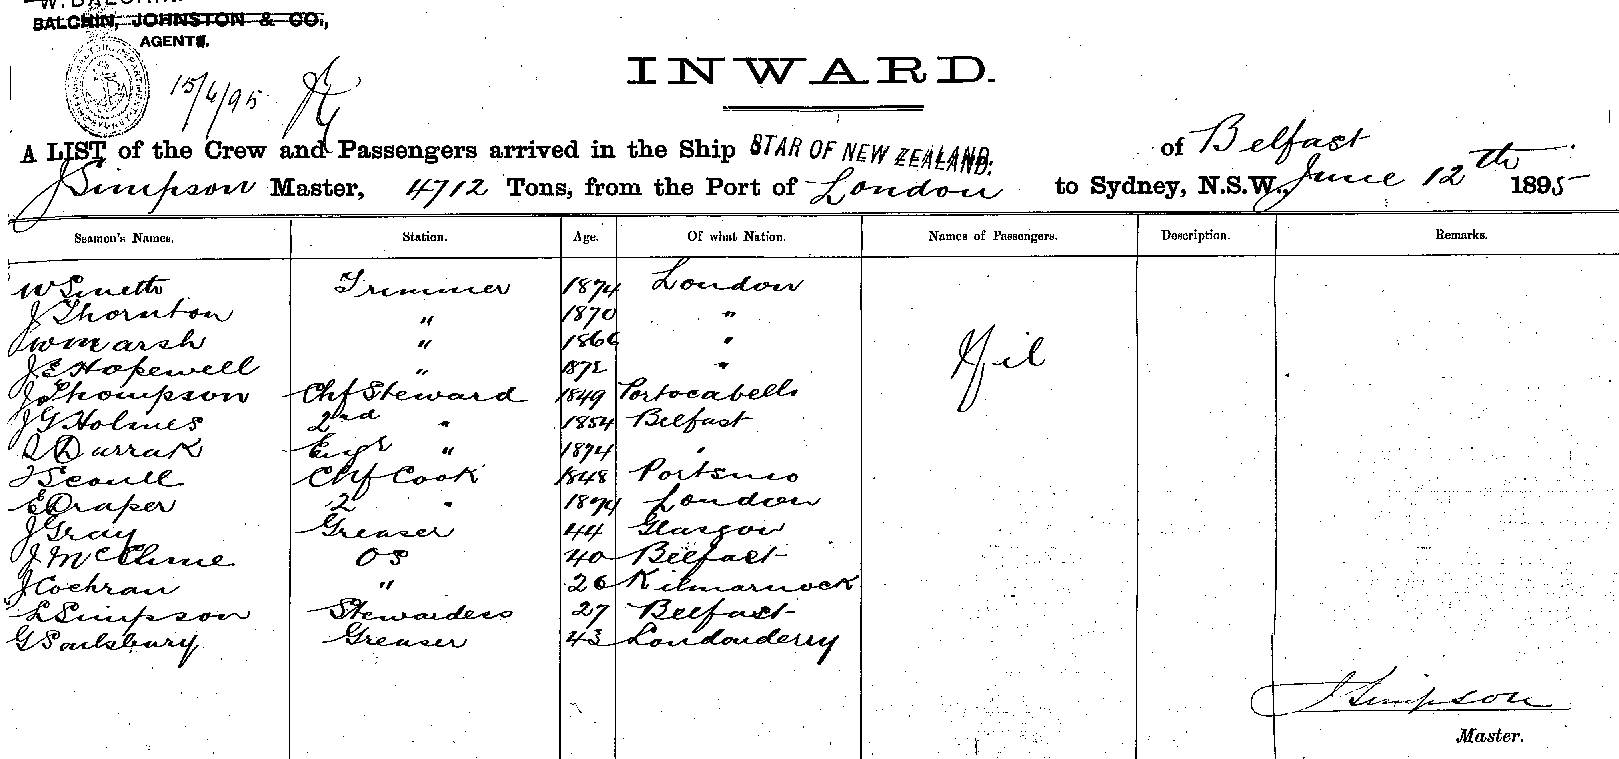 W. BALCHIN
BALCHIN, JOHNSTON & CO.,
AGENTS.
15/6/95
INWARD.
A LIST of the Crew and Passengers arrived in the Ship STAR OF NEW ZEALAND. of Belfast
J Simpson Master, 4712 Tons, from the Port of London to Sydney, N.S.W., June 12th 1895
Seamen's Names. Station. Age. Of what Nation. Names of Passengers. Description. Remarks.
W Smith Trimmer 1874 London
J Thornton " 1870 "
J W Marsh " 1866 "
J E Hopewell " 1872 "
Nil
J Thompson Chf Steward 1849 Portocabello
J G Holmes 2nd " 1854 Belfast
Darrak Engr " 1874 "
Chf Cook 1848
E Draper 2 " 1874 London
J Gray Greaser 44 Glasgow
J McClune OS 40 Belfast
J Cochran " 26 Kilmarnock
L Simpson Stewardess 27 Belfast
G Saulsbury Greaser 43 Londonderry
J Simpson
Master.